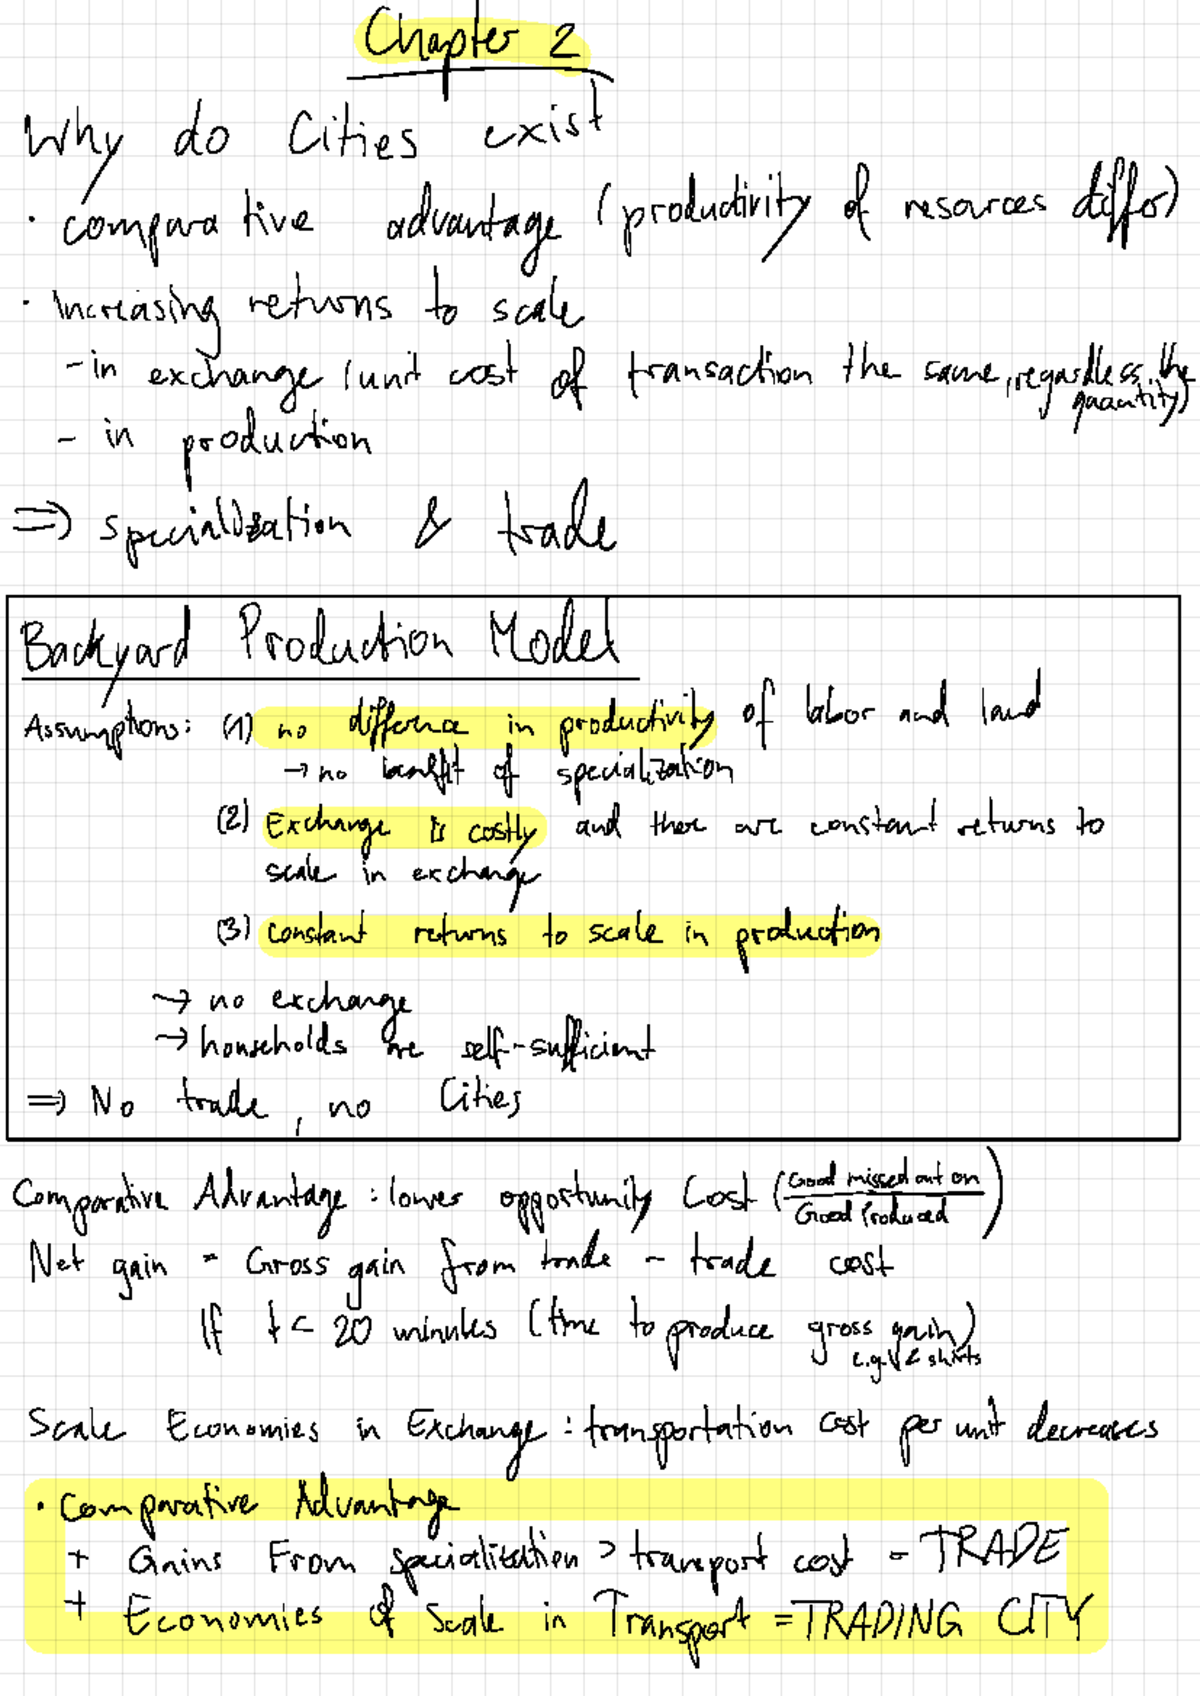 Chapter 2
Why do Cities exist
· comparative advantage (productivity of resources differ)
· Increasing returns to scale
- in exchange (unit cost of transaction the same, regardless the quantity)
- in production
⇒ specialization & trade
Backyard Production Model
Assumptions: (1) no difference in productivity of labor and land
→ no benefit of specialization
(2) Exchange is costly and there are constant returns to
scale in exchange
(3) constant returns to scale in production
→ no exchange
→ households are self-sufficient
⇒ No trade, no Cities
Comparative Advantage : lower opportunity Cost (Good missed out on / Good Produced)
Net gain = Gross gain from trade - trade cost
If t < 20 minutes (time to produce gross gain)
e.g. 1/2 shirts
Scale Economies in Exchange : transportation cost per unit decreases
· Comparative Advantage
+ Gains From specialization > transport cost = TRADE
+ Economies of Scale in Transport = TRADING CITY